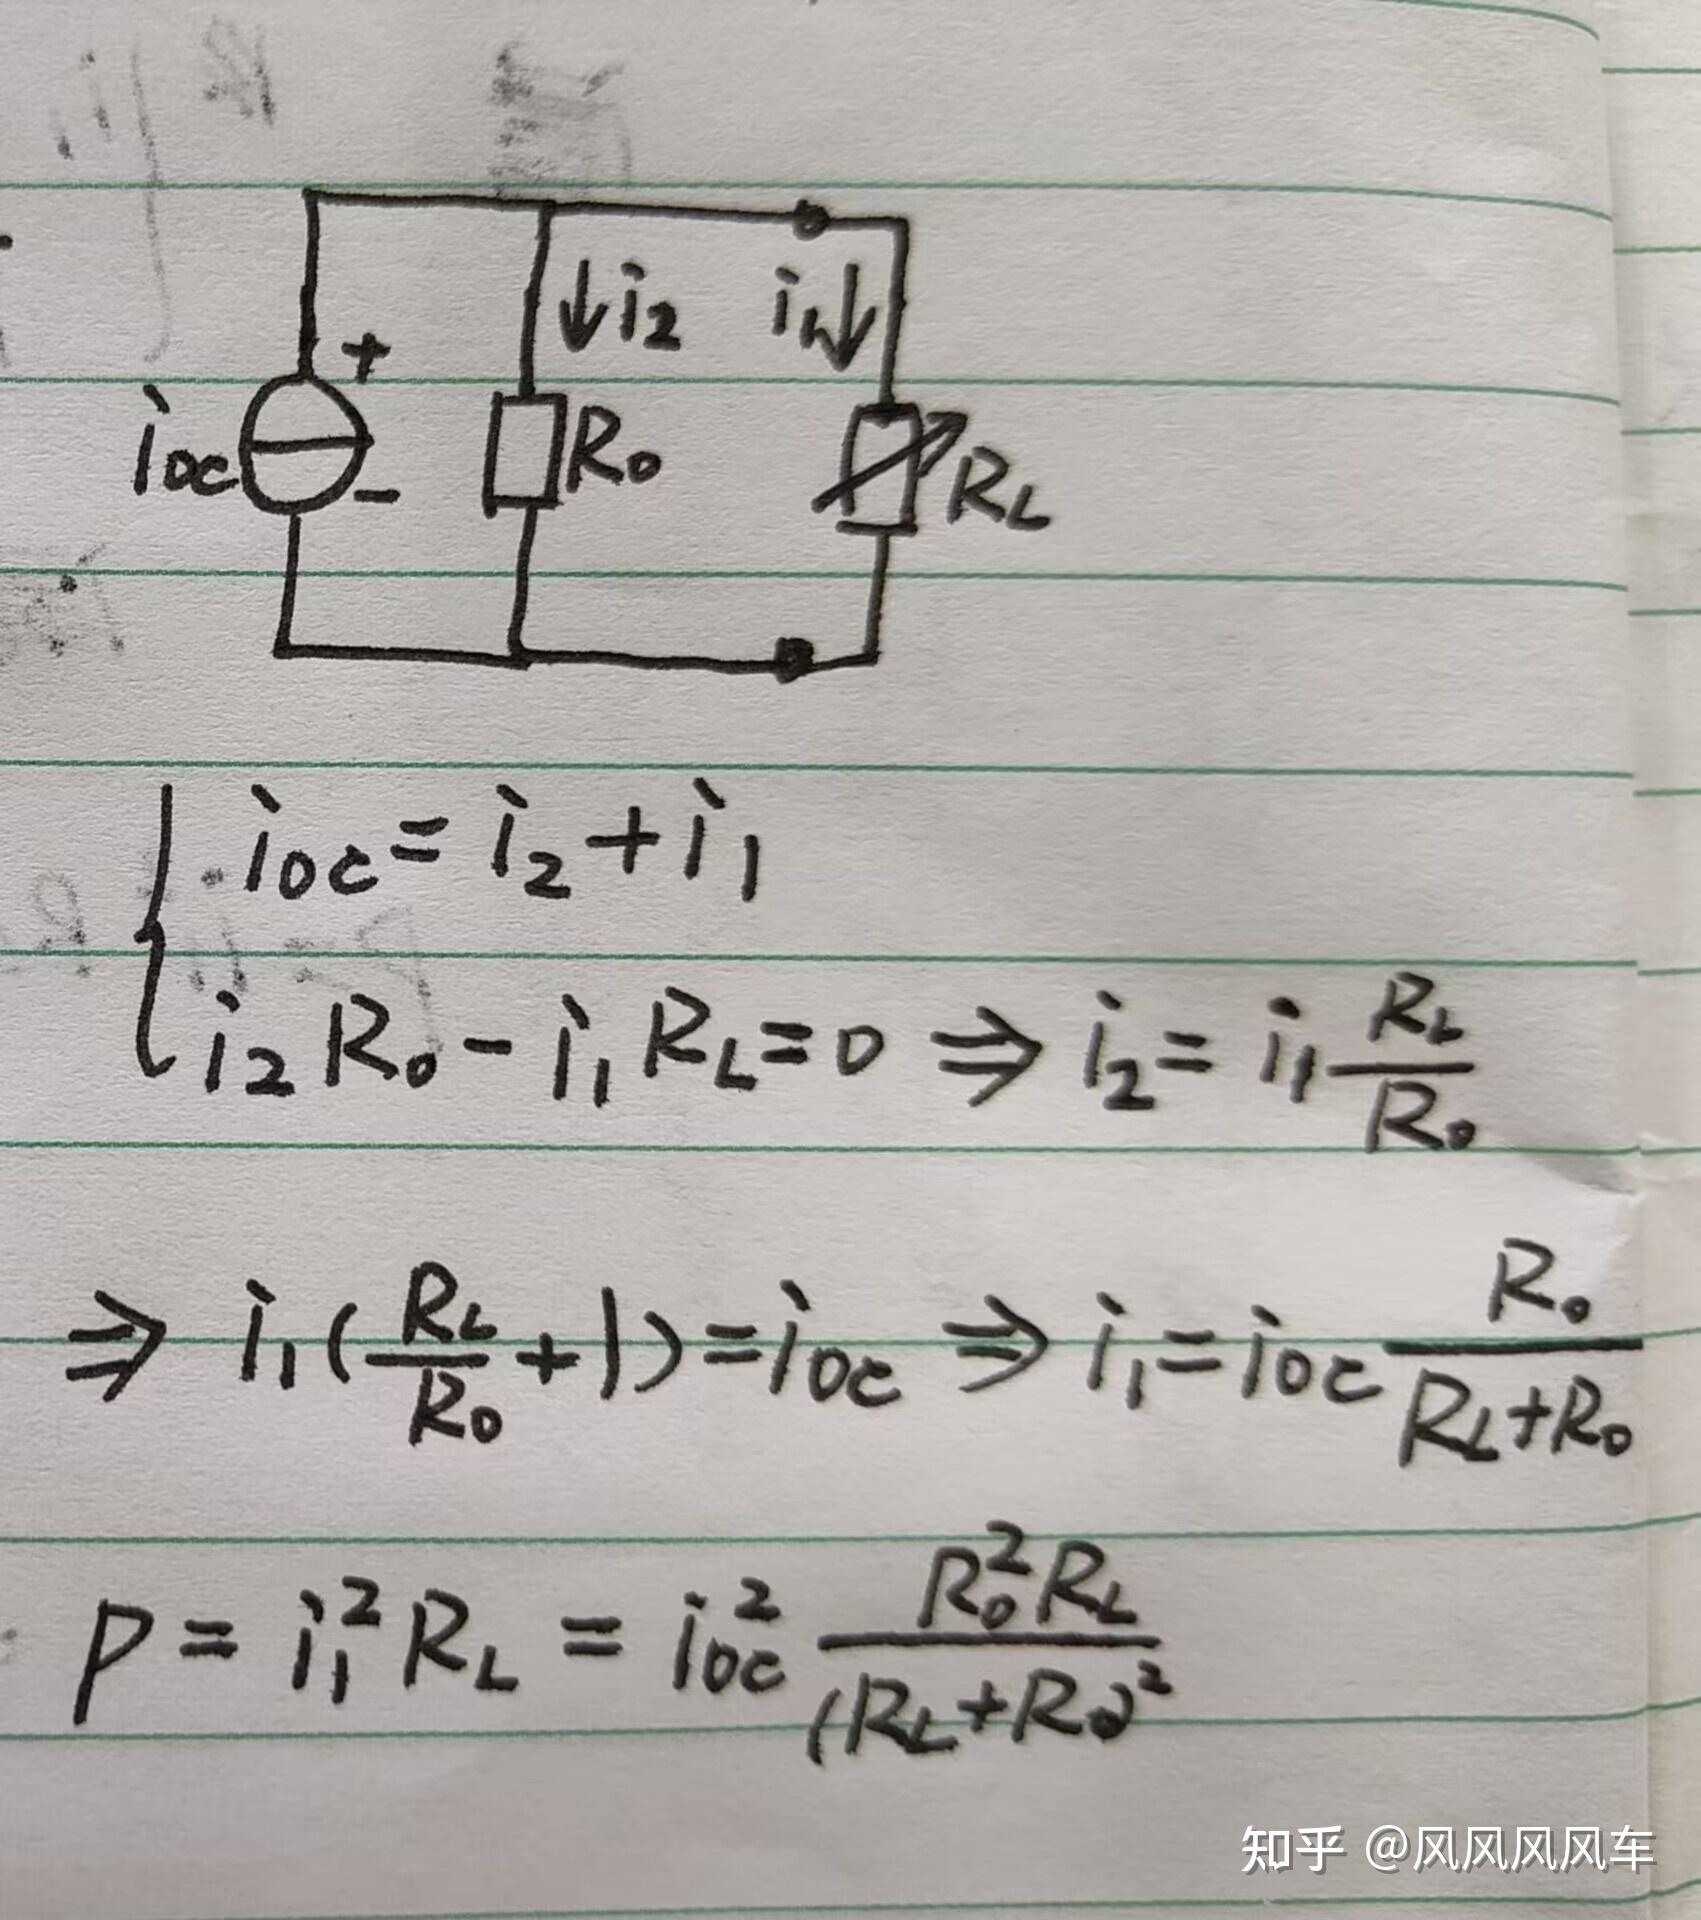 +
i₂ i₁
i₀c R₀ R_L
-
i₀c = i₂ + i₁
i₂R₀ - i₁R_L = 0 ⇒ i₂ = i₁ R_L/R₀
⇒ i₁(R_L/R₀ + 1) = i₀c ⇒ i₁ = i₀c R₀/(R_L+R₀)
P = i₁²R_L = i₀c² R₀²R_L/(R_L+R₀)²
知乎 @风风风风车